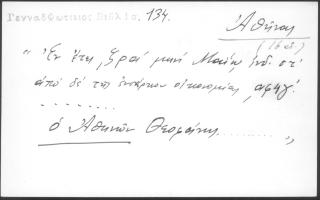 Γενναδ@ωτειος Βιβλιο. 134.
Ἀθῆναι
(16 αἰ.)
" Ἐν ἔτει, ζραί μηνὶ Μαίῳ, ἰνδ. στ'
ἀπὸ δὲ τῆς ἐνσάρκου οἰκονομίας, αφμγ'.
. . . . . . . .
ὁ Ἀθηνῶν Θεοφάνης . . . . . . . . "